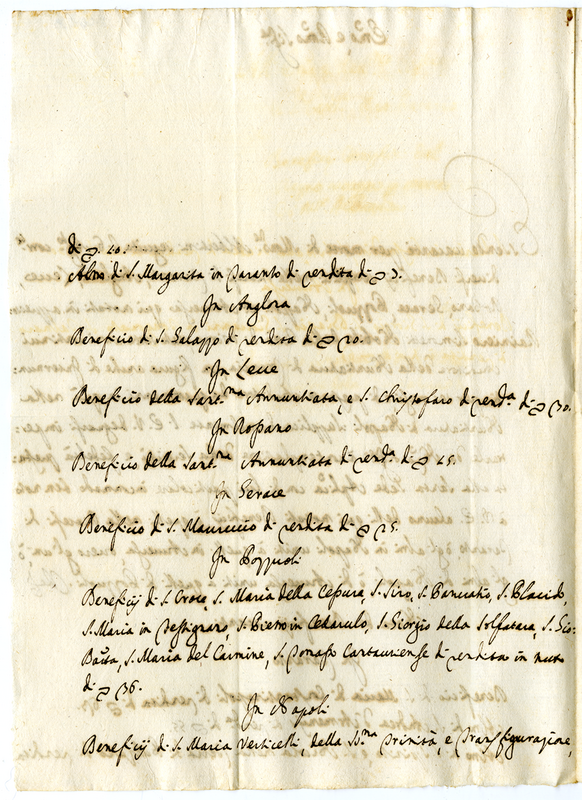 di D. 10.
Altro di S. Margarita in Taranto di rendita di D 3.
In Anglona
Beneficio di S. Galappo di rendita di D 20.
In Lecce
Beneficio della Sant.ma Annuntiata, e S. Christofaro di rend.a di D 30.
In Rossano
Beneficio della Sant.ma Annuntiata di rend.a di D 25.
In Gerace
Beneficio di S. Mauricio di rendita di D 25.
In Pozzuoli
Beneficij di S. Croce, S. Maria della S. Siro, S. Pancratio, S. Placido,
S. Maria in S. Pietro in S. Giorgio della Solfatara, S. Gio:
Batta, S. Maria del Carmine, S. Tomaso di rendita in tutto
di D 36.
In Napoli
Beneficij di S. Maria Verticelli, della SS.ma Trinità, e Transfiguratione,